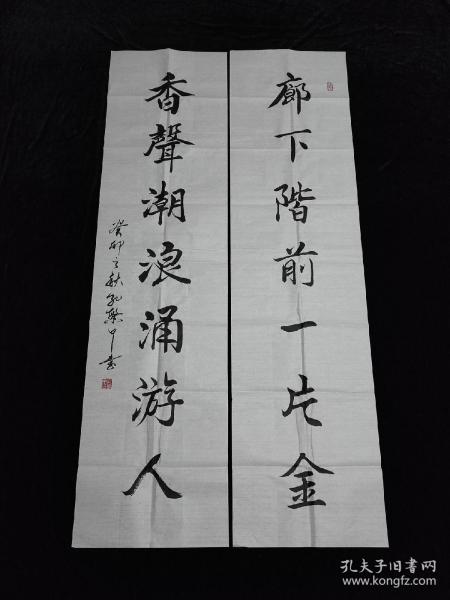 廊下階前一片金
香聲潮浪涌游人
癸卯之秋孔繁中書
孔夫子旧书网
www.kongfz.com